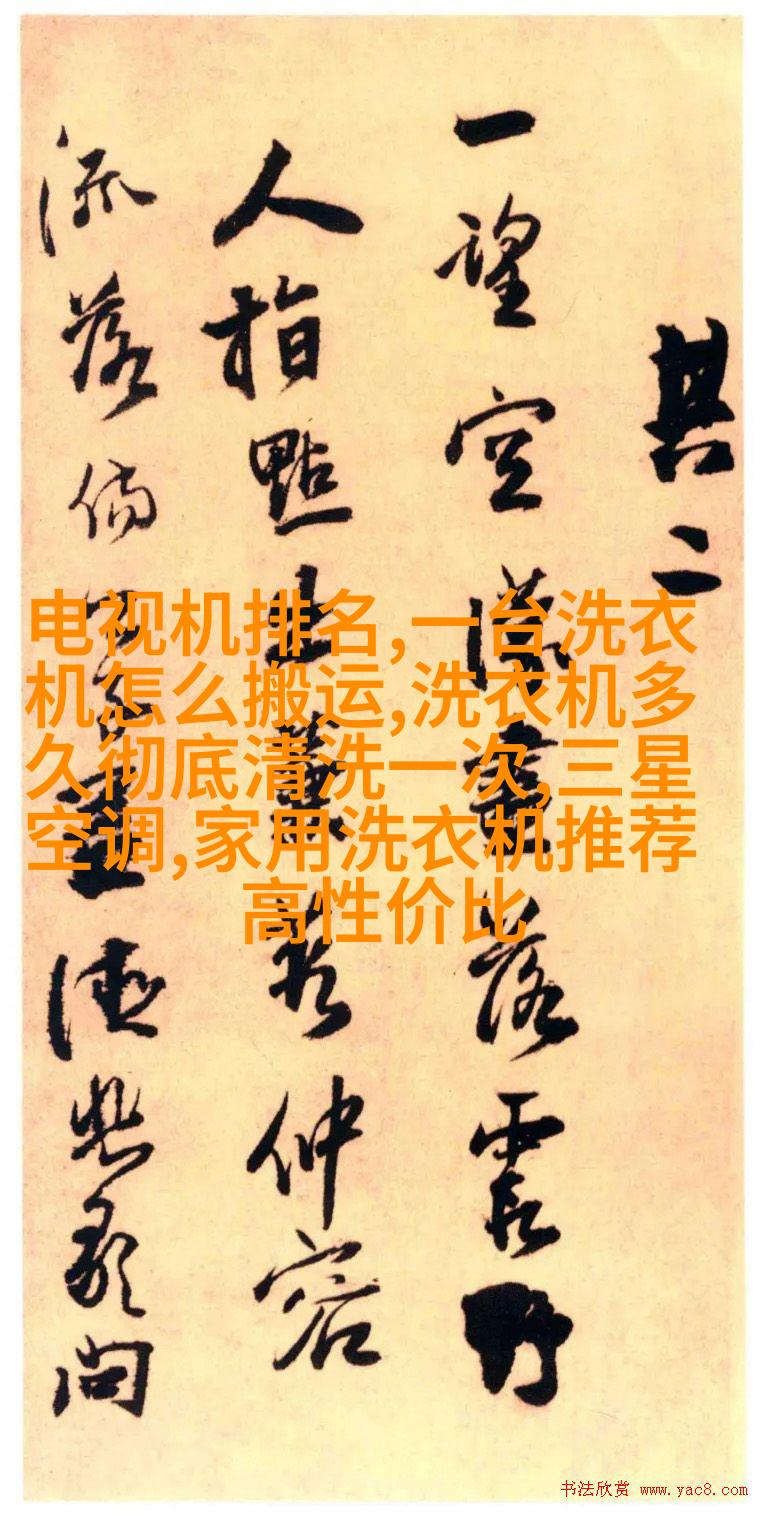 其二
一望空濛落霞野
人指點仲容
流落倘問
电视机排名,一台洗衣
机怎么搬运,洗衣机多
久彻底清洗一次,三星
空调,家用洗衣机推荐
高性价比
书法欣赏 www.yac8.com